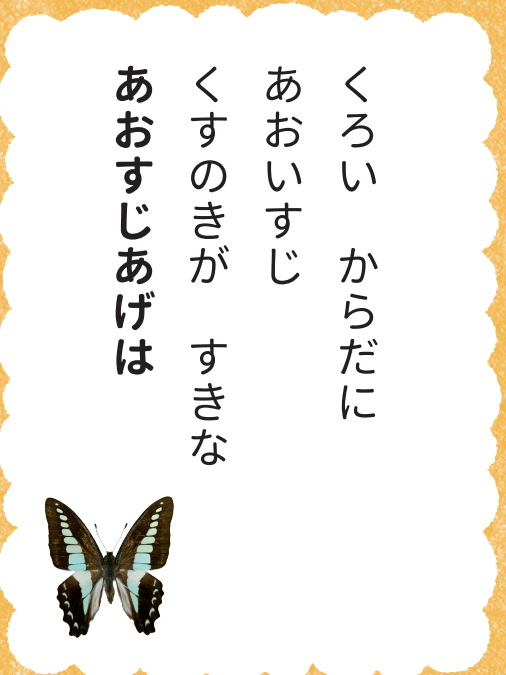 くろい　からだに
あおいすじ
くすのきが　すきな
あおすじあげは